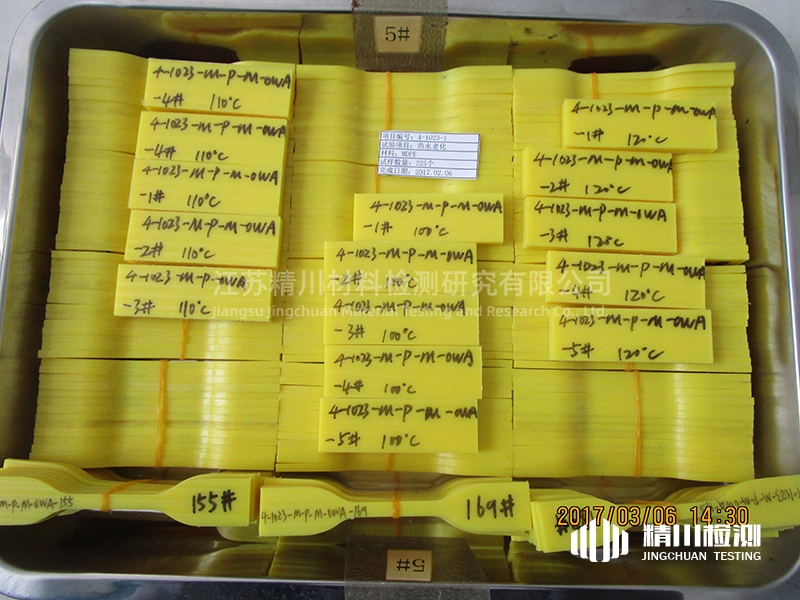 5#
4-1023-M-P-M-OWA
-4# 110°C
4-1023-M-P-M-OWA
-4# 110°C
4-1023-M-P-M-OWA
-1# 110°C
4-1023-M-P-M-OWA
-2# 110°C
4-1023-M-P-OWA
-3# 110°C
项目编号: 4-1023-1
试验项目: 热水老化
材料: MDPE
试样数量: 225个
完成日期: 2017.02.06
4-1023-M-P-M-OWA
-1# 100°C
4-1023-M-P-M-OWA
-2# 100°C
4-1023-M-P-M-OWA
-3# 100°C
4-1023-M-P-M-OWA
-4# 100°C
4-1023-M-P-M-OWA
-5# 100°C
4-1023-M-P-M-OWA
-1# 120°C
4-1023-M-P-M-OWA
-2# 120°C
4-1023-M-P-M-OWA
-3# 120°C
4-1023-M-P-M-OWA
-4# 120°C
4-1023-M-P-M-OWA
-5# 120°C
江苏精川材料检测研究有限公司
Jiangsu Jingchuan Material Testing and Research Co., Ltd
M-P-M-OWA-155 155#
4-1023-M-P-M-OWA-169 169#
2017/03/06 14:30
精川检测
JINGCHUAN TESTING
5#